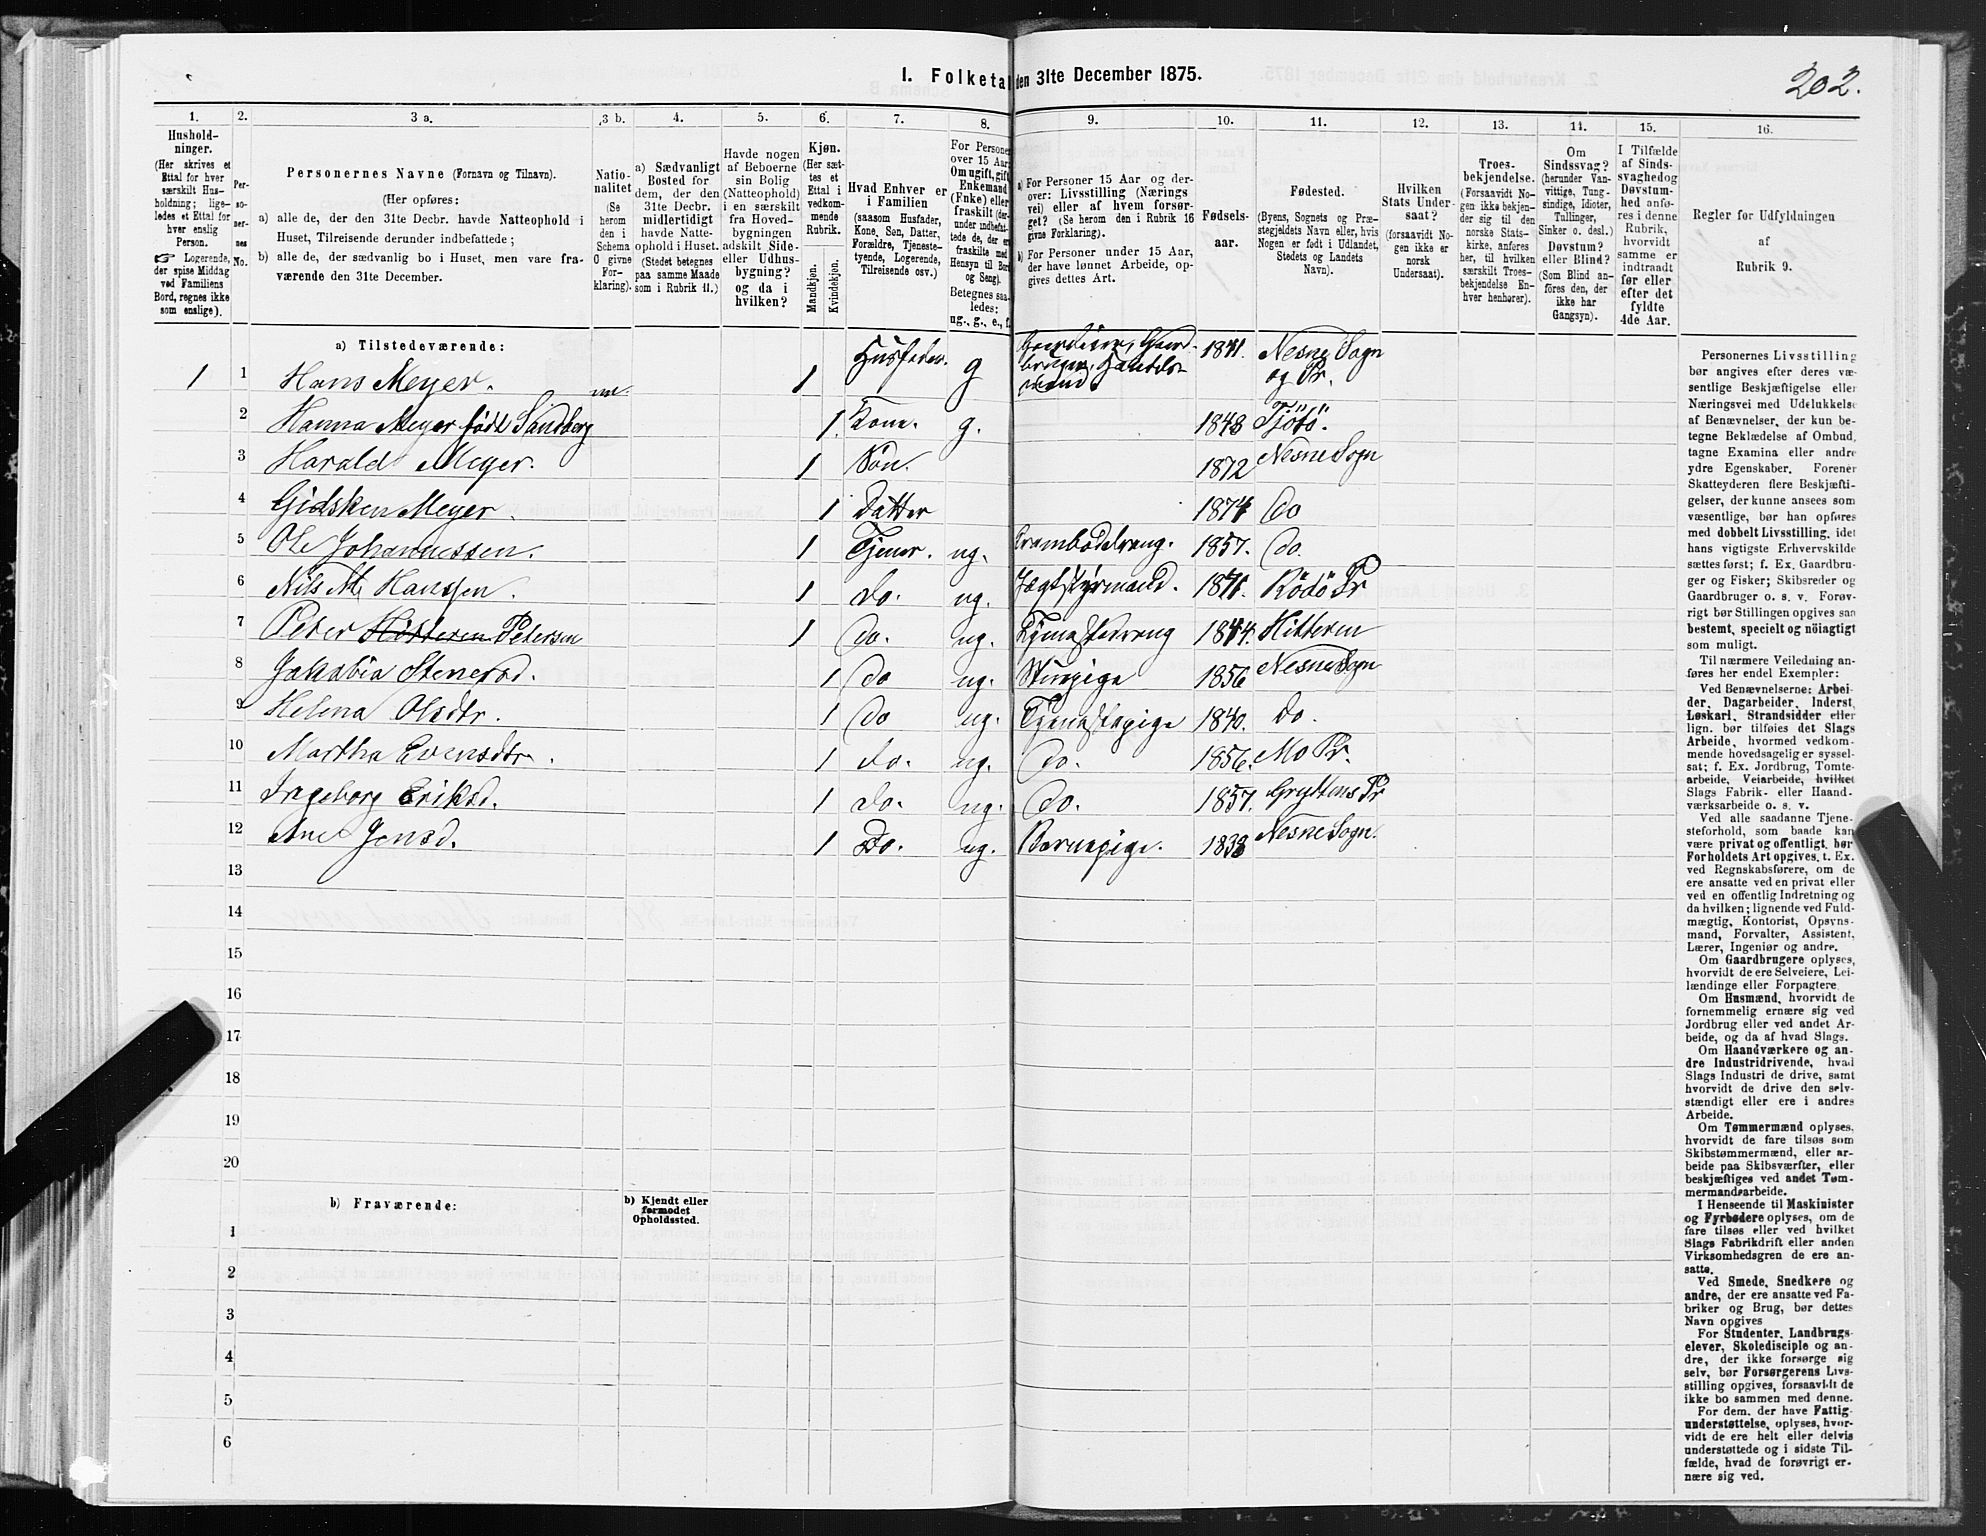 I. Folketal den 31te December 1875.
202.
1.
Hushold-
ninger.
(Her skrives et
Ettal for hver
særskilt Hus-
holdning; lige-
ledes et Ettal for
hver enslig
Person.
☞ Logerende,
der spise Middag
ved Familiens
Bord, regnes ikke
som enslige).
2.
Per-
so-
ner-
nes
No.
3 a.
Personernes Navne (Fornavn og Tilnavn).
(Her opføres:
a) alle de, der den 31te Decbr. havde Natteophold i
Huset, Tilreisende derunder indbefattede;
b) alle de, der sædvanlig bo i Huset, men vare fra-
værende den 31te December.
3 b.
Natio-
nalitet
(Se
herom
den i
Schema
O givne
For-
klaring).
4.
a) Sædvanligt
Bosted for
dem, der den
31te Decbr.
midlertidigt
havde Natte-
ophold i Huset.
(Stedet betegnes
paa samme Maade
som i Rubrik 11.)
5.
Havde nogen
af Beboerne
sin Bolig
(Natteophold)
i en særskilt
fra Hoved-
bygningen
adskilt Side-
eller Udhus-
bygning?
og da i
hvilken?
6.
Kjøn.
(Her sæt-
tes et
Ettal i
vedkom-
mende
Rubrik.
Mandkjøn.
Kvindekjøn.
7.
Hvad Enhver er
i Familien
(saasom Husfader,
Kone, Søn, Datter,
Forældre, Tjeneste-
tyende, Logerende,
Tilreisende osv.)
8.
For Personer
over 15 Aar:
Om ugift, gift,
Enkemand
(Enke) eller
fraskilt (der-
under indbefat-
tede de, der er
fraskilte med
Hensyn til Bord
og Seng).
Betegnes saa-
ledes:
ug., g., e., f.
9.
a) For Personer 15 Aar og der-
over: Livsstilling (Nærings
vei) eller af hvem forsør-
get? (Se herom den i Rubrik 16
givne Forklaring).
b) For Personer under 15 Aar,
der have lønnet Arbeide, op-
gives dettes Art.
10.
Fødsels-
aar.
11.
Fødested.
(Byens, Sognets og Præ-
stegjeldets Navn eller, hvis
Nogen er født i Udlandet,
Stedets og Landets
Navn).
12.
Hvilken
Stats Under-
saat?
(forsaavidt No-
gen ikke er
norsk
Undersaat).
13.
Troes-
bekjendelse.
(Forsaavidt No-
gen ikke bekjen-
der sig til den
norske Stats-
kirke, anføres
her, til hvilken
særskilt Troes-
bekjendelse En-
hver henhører).
14.
Om
Sindssvag?
(herunder Van-
vittige, Tung-
sindige, Idioter,
Tullinger,
Sinker o. desl.)
Døvstum?
eller Blind?
(Som Blind an-
føres den, der
ikke har
Gangsyn).
15.
I Tilfælde
af Sinds-
svaghed og
Døvstum-
hed anfø-
res i denne
Rubrik,
hvorvidt
samme er
indtraadt
før eller
efter det
fyldte
4de Aar.
16.
Regler for Udfyldningen
af
Rubrik 9.
a) Tilstedeværende:
1 1 Hans Meyer. nn. 1 Husfader. g Gaardeier, Gaard-
bruger, Handels-
mand 1841. Nesne Sogn
og Pr.
2 Hanna Meyer født Sandberg 1. Kone. g. 1848 Tjötö.
3 Harald Meyer. 1 Søn. 1872 Nesne Sogn
4 Gidsken Meyer. 1 Datter 1874 Do
5 Ole Johannessen. 1 Tjener. ug. Krambodedreng. 1857. Do.
6 Nils M. Hanssen. 1 do. ug. Jægtstyrmand. 1841. Rödö Pr
7 Peter Hitteren Petersen 1 Do. ug. Tjenestedreng 1844. Hitteren
8 Jakobia Stenersd. 1 Do ug. Stuepige 1856 Nesne Sogn
9 Helena Olsdtr. 1 Do ug. Tjenestepige 1840. Do.
10 Martha Evensdtr. 1 do. ug. Do. 1856. Mo Pr.
11 Ingeborg Eriksd. 1 do. ug. Do. 1857. Gryttens Pr
12 Ane Jensd. 1 Do. ug. Barnepige. 1838 Nesne Sogn.
13
14
15
16
17
18
19
20
b) Fraværende:
b) Kjendt eller
formodet
Opholdssted.
1
2
3
4
5
6
Personernes Livsstilling
bør angives efter deres væ-
sentlige Beskjæftigelse eller
Næringsvei med Udelukkelse
af Benævnelser, der kun be-
tegne Beklædelse af Ombud,
tagne Examina eller andre
ydre Egenskaber. Forener
Skatteyderen flere Beskjæfti-
gelser, der kunne ansees som
væsentlige, bør han opføres
med dobbelt Livsstilling, idet
hans vigtigste Erhvervskilde
sættes først; f. Ex. Gaardbru-
ger og Fisker; Skibsreder og
Gaardbruger o. s. v. Forøv-
rigt bør Stillingen opgives saa
bestemt, specielt og nöiagtigt
som muligt.
Til nærmere Veiledning an-
føres her endel Exempler:
Ved Benævnelserne: Arbei-
der, Dagarbeider, Inderst,
Løskarl, Strandsidder eller
lign. bør tilføies det Slags
Arbeide, hvormed vedkom-
mende hovedsagelig er syssel-
sat; f. Ex. Jordbrug, Tomte-
arbeide, Veiarbeide, hvilket
Slags Fabrik- eller Haand-
værksarbeide o. s. v.
Ved alle saadanne Tjene-
steforhold, som baade kan
være privat og offentligt, bør
Forholdets Art opgives, t. Ex.
ved Regnskabsførere, om de
ere ansatte ved en privat eller
ved en offentlig Indretning og
da hvilken; lignende ved Fuld-
mægtig, Kontorist, Opsyns-
mand, Forvalter, Assistent,
Lærer, Ingeniør og andre.
Om Gaardbrugere oplyses,
hvorvidt de ere Selveiere, Lei-
lændinge eller Forpagtere
Om Husmænd, hvorvidt de
fornemmelig ernære sig ved
Jordbrug eller ved andet Ar-
beide, og da af hvad Slags.
Om Haandværkere og an-
dre Industridrivende, hvad
Slags Industri de drive, samt
hvorvidt de drive den selv-
stændigt eller ere i andres
Arbeide.
Om Tømmermænd oplyses,
hvorvidt de fare tilsøs som
Skibstømmermænd, eller ar-
beide paa Skibsværfter, eller
beskjæftiges ved andet Tøm-
mermandsarbeide.
I Henseende til Maskinister
og Fyrbødere oplyses, om de
fare tilsøs eller ved hvilket
Slags Fabrikdrift eller anden
Virksomhedsgren de ere an-
satte.
Ved Smede, Snedkere og
andre, der ere ansatte ved Fa-
briker og Brug, bør dettes
Navn opgives
For Studenter, Landbrugs-
elever, Skoledisciple og an-
dre, der ikke forsørge sig
selv, bør Forsørgerens Livs-
stilling opgives, forsaavidt de
ikke bo sammen med denne.
For dem, der have Fattig-
understøttelse, oplyses, hvor-
vidt de ere helt eller delvis
understøttede og i sidste Til-
fælde, hvad de forøvrigt er-
nære sig ved.